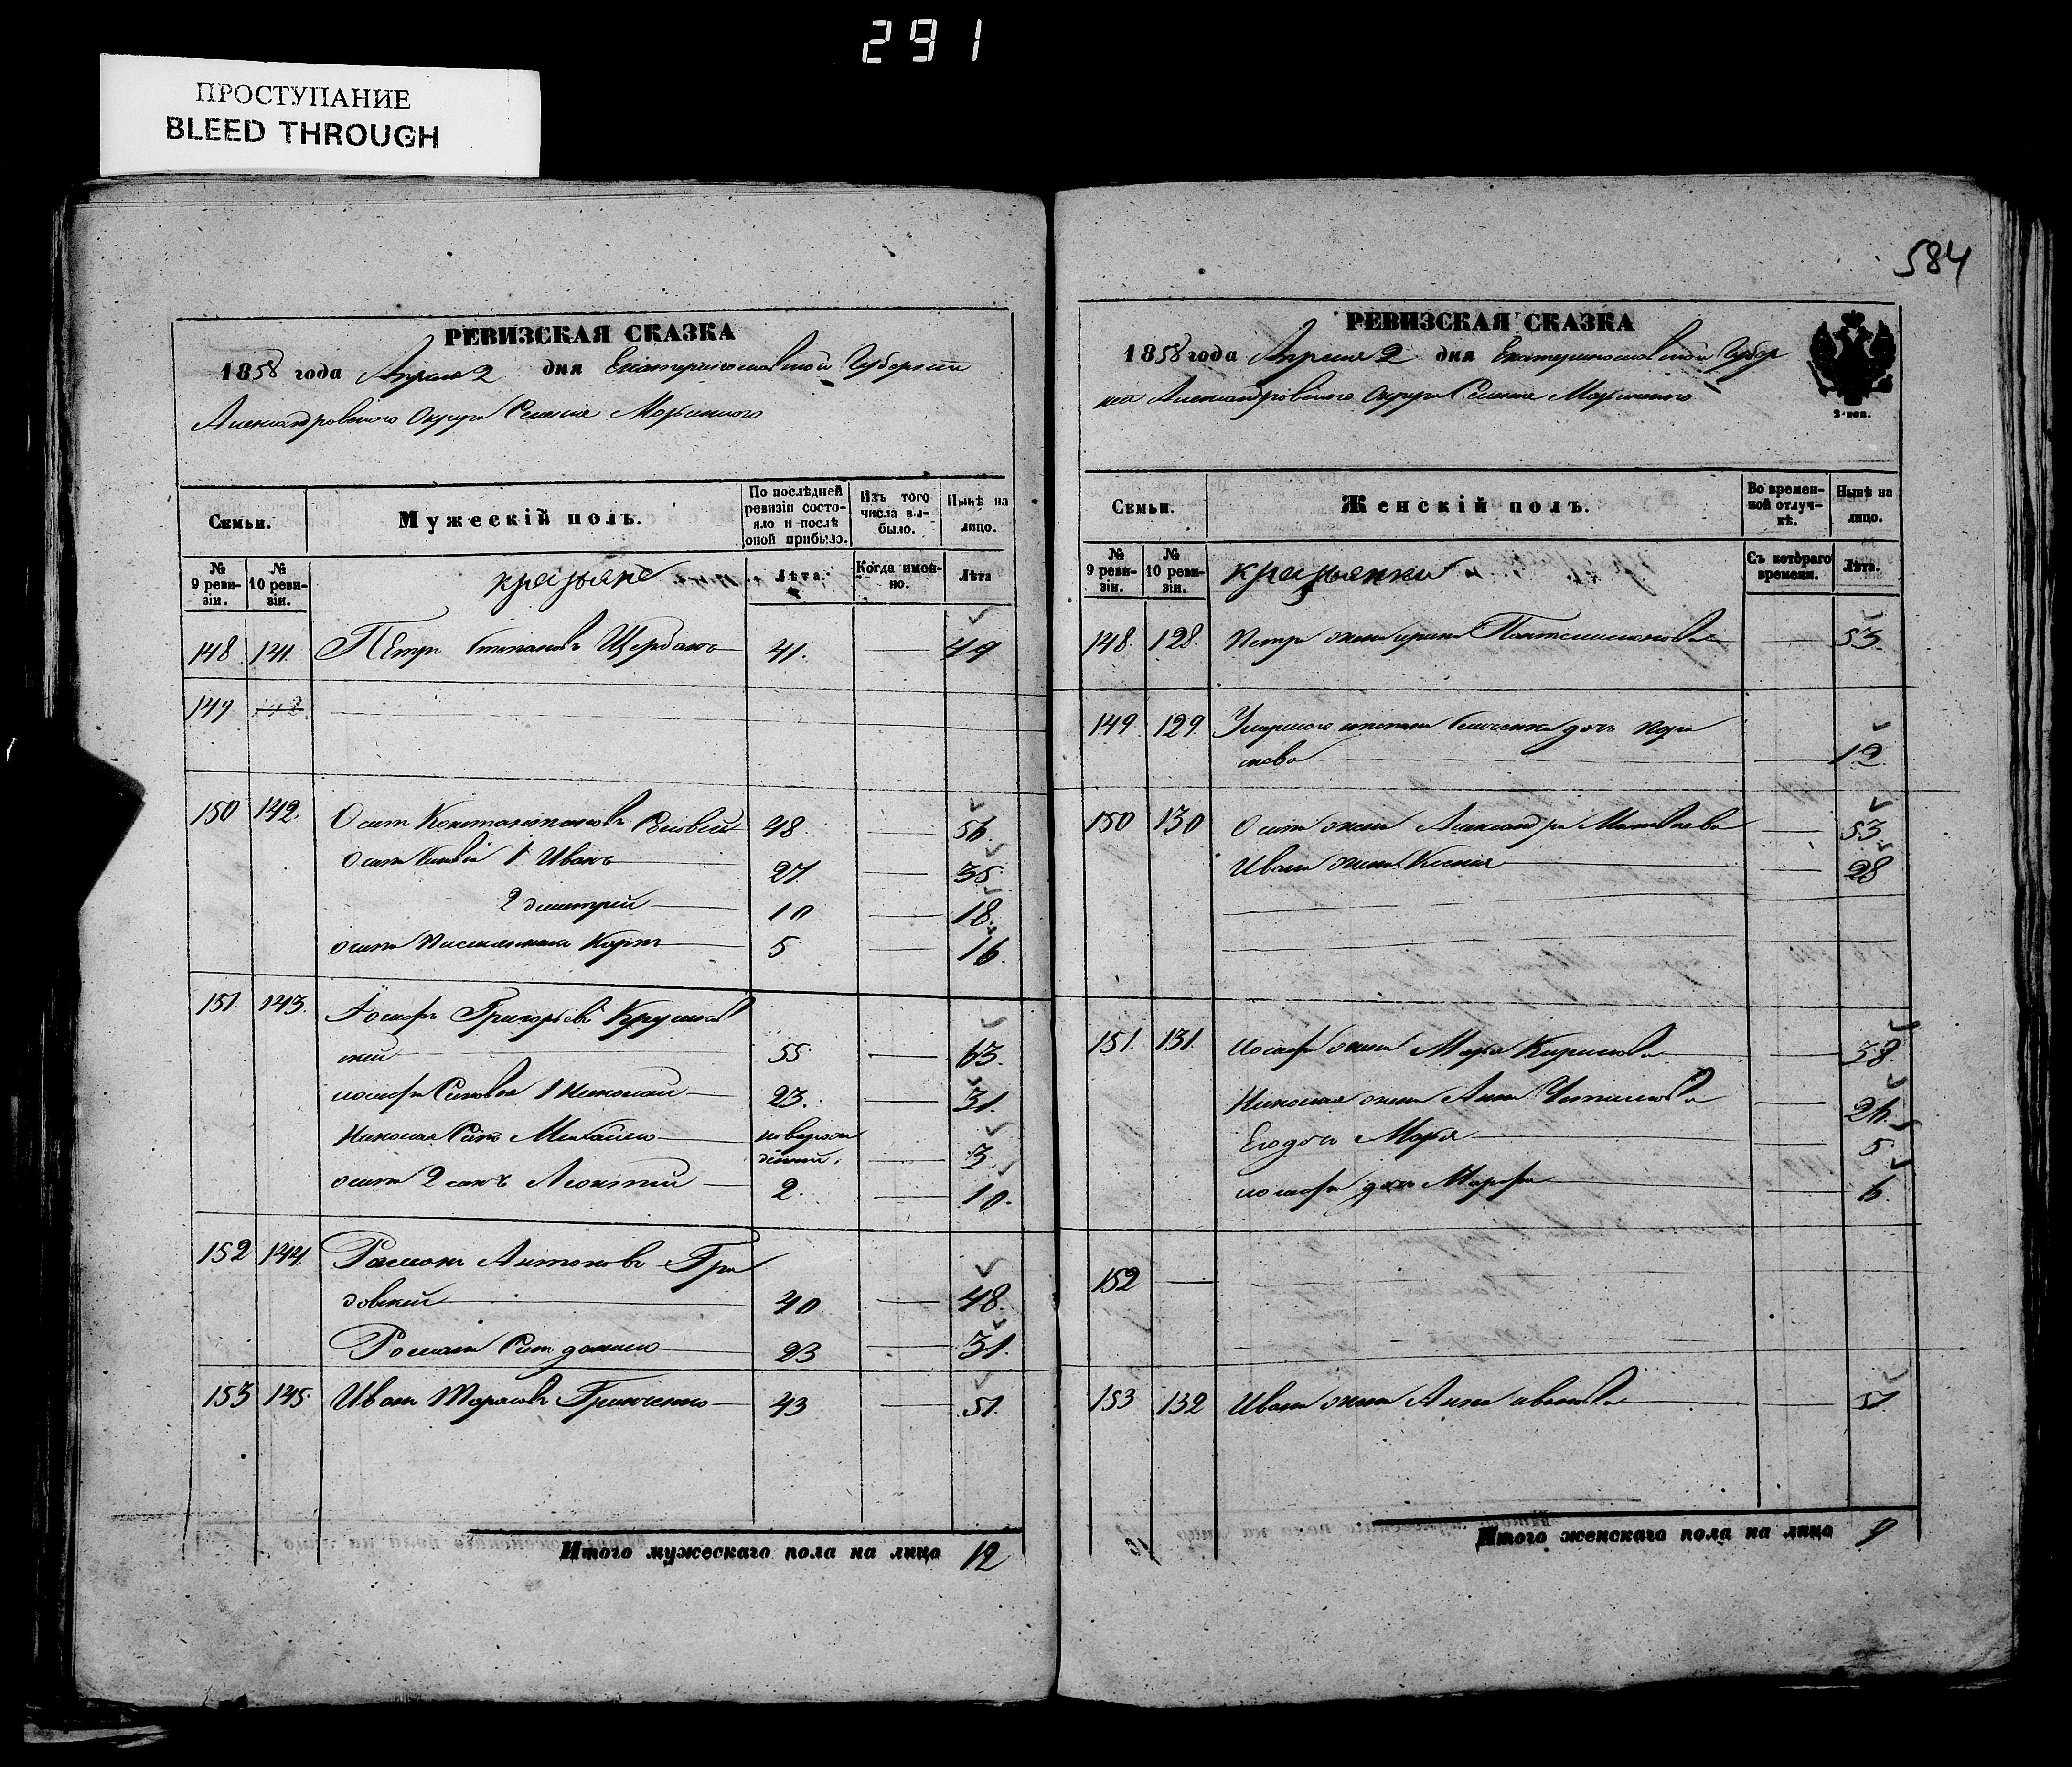 291
ПРОСТУПАНИЕ
BLEED THROUGH
РЕВИЗСКАЯ СКАЗКА
1858 года Апреля 2 дня Екатеринославской Губернии
Александровского Округа Селения
Семьи.
Мужескій полъ.
По послѣдней ревизіи состояло и послѣ оной прибыло.
Изъ того числа выбыло.
Нынѣ на лицо.
№ 9 ревизіи.
№ 10 ревизіи.
Лѣта.
Когда именно.
Лѣта
148 141. Петръ Степановъ Щербакъ 41. 49
149 142
150 142. Осипъ Константиновъ 48 56.
Осипа Сыновья 1 Иванъ 27. 35
2 Дмитрій 10 18.
Осипа 5 16.
151. 143. Іосифъ Григорьевъ Крушев
скій 55 63.
Іосифа Сыновья 1 Николай 23. 31.
Николая Сынъ Михайло новорож
денный. 3.
2 сынъ Леонтій 2. 10.
152 144. Романъ Антоновъ
довскій 40 48.
Романа Сынъ Данило 23 31.
153 145. Иванъ Тарасовъ Гринченко 43 51.
Итого мужескаго пола на лицо 12
584
РЕВИЗСКАЯ СКАЗКА
1858 года Апреля 2 дня Екатеринославской Губер
нии Александровского Округа Селения
2 коп.
Семьи.
Женскій полъ.
Во временной отлучкѣ.
Нынѣ на лицо.
№ 9 ревизіи.
№ 10 ревизіи.
Съ котораго времени.
Лѣта.
148. 128. Петра жена Ирина Пантелимонова 53.
149 129. Умершого дочь
12
150 130 Осипа жена Александра Матвеева 53.
Ивана жена Ксенія 28
151. 131. Іосифа жена Марья Кирилова 38.
Николая жена Анна 26.
Его дочь Марья 5
Іосифа дочь Марфа 6.
152
153 132 Ивана жена Анна Иванова 51
Итого женскаго пола на лицо 9